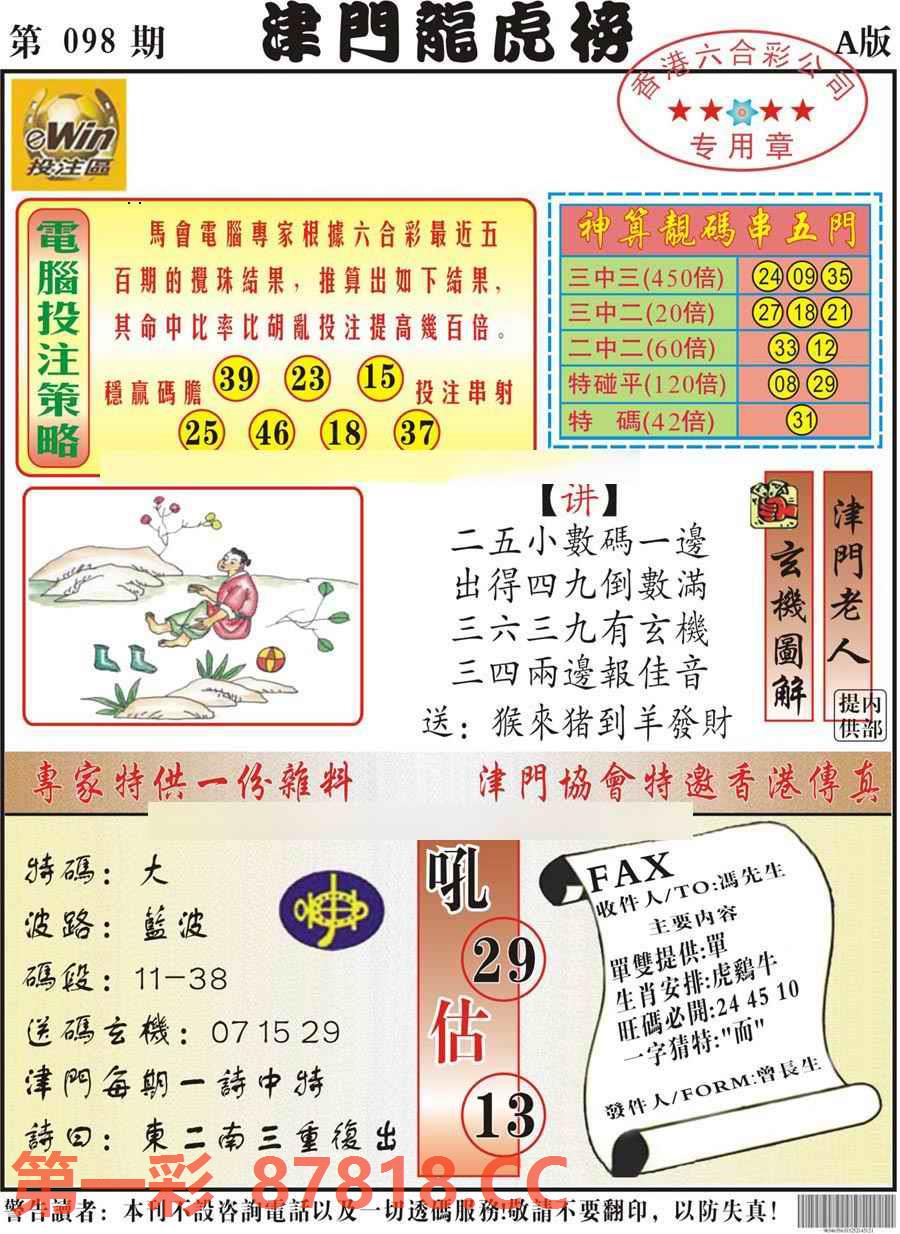 第 098 期
津門龍虎榜
A版
香港六合彩公司
专用章
eWin
投注區
電腦投注策略
馬會電腦專家根據六合彩最近五
百期的攪珠結果，推算出如下結果，
其命中比率比胡亂投注提高幾百倍。
穩贏碼膽 39 23 15 投注串射
25 46 18 37
神算靚碼串五門
三中三(450倍) 24 09 35
三中二(20倍) 27 18 21
二中二(60倍) 33 12
特碰平(120倍) 08 29
特 碼(42倍) 31
【讲】
二五小數碼一邊
出得四九倒數滿
三六三九有玄機
三四兩邊報佳音
送：猴來猪到羊發財
玄機圖解
津門老人
提内
供部
專家特供一份雜料
津門協會特邀香港傳真
特碼：大
波路：藍波
碼段：11-38
送碼玄機：07 15 29
津門每期一詩中特
詩曰：東二南三重復出
吼
29
估
13
FAX
收件人/TO:馮先生
主要内容
單雙提供:單
生肖安排:虎鷄牛
旺碼必開:24 45 10
一字猜特:"而"
發件人/FORM:曾長生
第一彩 87818.CC
警告讀者：本刊不設咨詢電話以及一切透碼服務!敬請不要翻印，以防失真!